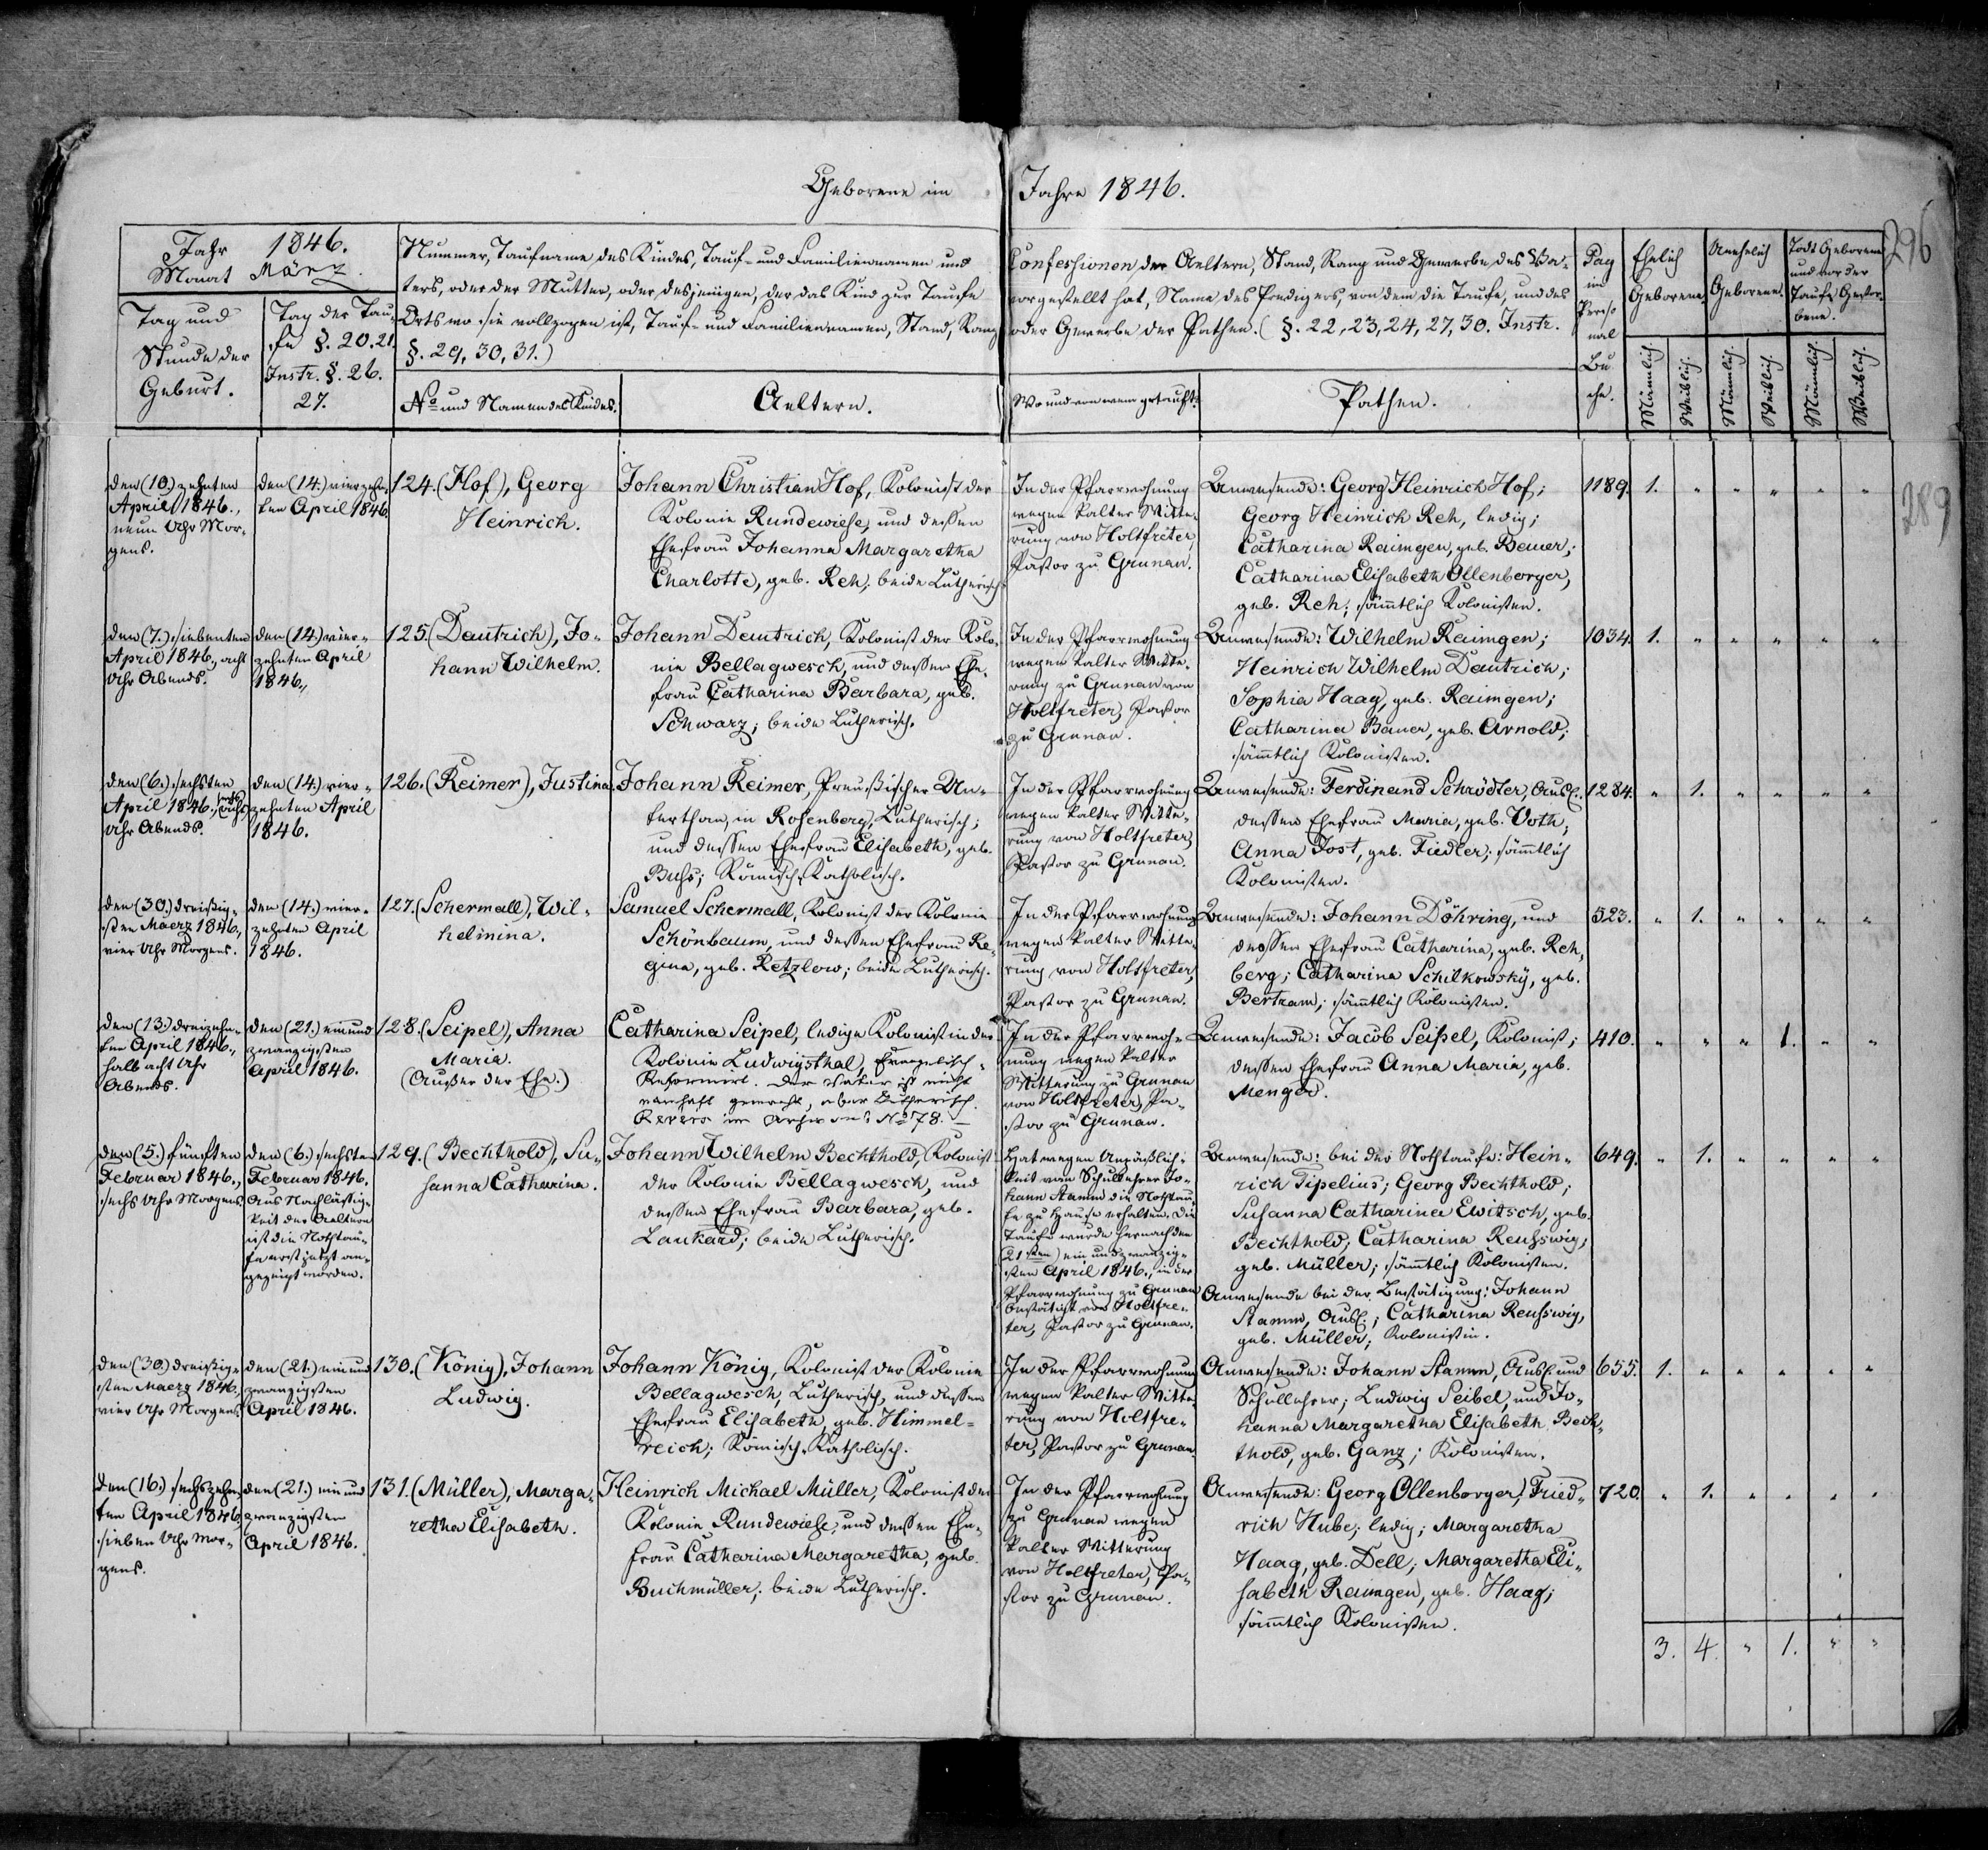 Geborene im Jahre 1846.
296
289
Jahr 1846.
Monat März.
Tag und
Stunde der
Geburt.
Tag der Tau-
fe §. 20. 21.
Instr. §. 26.
27.
Nummer, Taufname des Kindes, Tauf- und Familiennamen und
Confessionen der Aeltern, Stand, Rang und Gewerbe des Va-
ters, oder der Mutter, oder desjenigen, der das Kind zur Taufe
vorgestellt hat, Name des Predigers, von dem die Taufe, und des
Orts wo sie vollzogen ist, Tauf- und Familiennamen, Stand, Rang
oder Gewerbe der Pathen. (§. 22, 23, 24, 27, 30. Instr.
§. 29, 30, 31.)
No und Namen des Kindes.
Aeltern.
Wo und von wem getauft.
Pathen.
Pag
im
Perso
nal
Bu
che.
Ehelich
Geborene
Unehelich
Geborene.
Todt Geborene
und vor der
Taufe Gestor-
bene.
Männlich.
Weiblich.
Männlich.
Weiblich.
Männlich.
Weiblich.
den (10.) zehnten
April 1846.,
neun Uhr Mor-
gens.
den (14.) vierzehn-
ten April 1846.
124. (Hof), Georg
Heinrich.
Johann Christian Hof, Kolonist der
Kolonie Rundewiese, und dessen
Ehefrau Johanna Margaretha
Charlotte, geb. Reh; beide Lutherisch.
In der Pfarrwohnung
wegen kalter Witte-
rung von Holtfreter,
Pastor zu Grunau.
Anwesende: Georg Heinrich Hof;
Georg Heinrich Reh, ledig;
Catharina Raimgen, geb. Bauer;
Catharina Elisabeth Ollenborger,
geb. Reh; sämtlich Kolonisten.
1189. 1. " " " " "
den (7.) siebenten
April 1846., acht
Uhr Abends.
den (14.) vier-
zehnten April
1846.,
125. (Dautrich), Jo-
hann Wilhelm.
Johann Dautrich, Kolonist der Kolo-
nie Bellagwesch, und dessen Ehe-
frau Catharina Barbara, geb.
Schwarz; beide Lutherisch.
In der Pfarrwohnung
wegen kalter Witte-
rung zu Grunau von
Holtfreter, Pastor
zu Grunau.
Anwesende: Wilhelm Raimgen;
Heinrich Wilhelm Dautrich;
Sophia Haag, geb. Raimgen;
Catharina Bauer, geb. Arnold;
sämtlich Kolonisten.
1034. 1. " " " " "
den (6.) sechsten
April 1846., sechs
Uhr Abends.
den (14.) vier-
zehnten April
1846.
126. (Reimer), Justina.
Johann Reimer, Preußischer Un-
terthan, in Rosenberg, Lutherisch;
und dessen Ehefrau Elisabeth, geb.
Buhs; Römisch-Katholisch.
In der Pfarrwohnung
wegen kalter Witte-
rung von Holtfreter,
Pastor zu Grunau.
Anwesende: Ferdinand Schrödter, Ausl.
dessen Ehefrau Maria, geb. Voth;
Anna Jost, geb. Fiedler; sämtlich
Kolonisten.
1284. " 1. " " " "
den (30.) dreißig-
sten Maerz 1846.,
vier Uhr Morgens.
den (14.) vier-
zehnten April
1846.
127. (Schermall), Wil-
helmina.
Samuel Schermall, Kolonist der Kolonie
Schönbaum, und dessen Ehefrau Re-
gina, geb. Retzlow; beide Lutherisch.
In der Pfarrwohnung
wegen kalter Witte-
rung von Holtfreter,
Pastor zu Grunau.
Anwesende: Johann Döhring, und
dessen Ehefrau Catharina, geb. Reh,
berg; Catharina Schilkowsky, geb.
Bertram; sämtlich Kolonisten.
523. " 1. " " " "
den (13.) dreizehn-
ten April 1846.,
halb acht Uhr
Abends.
den (21.) ein und
zwanzigsten
April 1846.
128. (Seipel), Anna
Maria.
(Außer der Ehe.)
Catharina Seipel, ledige Kolonistin der
Kolonie Ludwigsthal, Evangelisch-
Reformirt. Der Vater ist nicht
namhaft gemacht, aber Lutherisch.
Revers im Archiv sub No 78.
In der Pfarrwoh-
nung wegen kalter
Witterung zu Grunau
von Holtfreter, Pa-
stor zu Grunau.
Anwesende: Jacob Seipel, Kolonist;
dessen Ehefrau Anna Maria, geb.
Menger.
410. " " " 1. " "
den (5.) fünften
Februar 1846.,
sechs Uhr Morgens.
den (6.) sechsten
Februar 1846.
Aus Nachlässig-
keit der Aeltern
ist die Nothtau-
fe erst jetzt an-
gezeigt worden.
129. (Bechthold), Su-
sanna Catharina.
Johann Wilhelm Bechthold, Kolonist
der Kolonie Bellagwesch, und
dessen Ehefrau Barbara, geb.
Laukard; beide Lutherisch.
Hat wegen Unpäßlich-
keit vom Schullehrer Jo-
hann Stamm die Nothtau-
fe zu Hause erhalten. Die
Taufe wurde hernach den
(21sten) ein und zwanzig-
sten April 1846., in der
Pfarrwohnung zu Grunau
bestätigt von Holtfre-
ter, Pastor zu Grunau.
Anwesende: bei der Nothtaufe: Hein-
rich Tipelius; Georg Bechthold;
Susanna Catharina Ewitsch, geb.
Bechthold; Catharina Reusswig,
geb. Müller; sämtlich Kolonisten.
Anwesende bei der Bestätigung: Johann
Stamm, Ausl.; Catharina Reusswig,
geb. Müller; Kolonistin.
649. " 1. " " " "
den (30.) dreißig-
sten Maerz 1846.,
vier Uhr Morgens.
den (21.) ein und
zwanzigsten
April 1846.
130. (König), Johann
Ludwig.
Johann König, Kolonist der Kolonie
Bellagwesch, Lutherisch, und dessen
Ehefrau Elisabeth, geb. Himmel-
reich; Römisch-Katholisch.
In der Pfarrwohnung
wegen kalter Witte-
rung von Holtfre-
ter, Pastor zu Grunau.
Anwesende: Johann Stamm, Ausl. und
Schullehrer; Ludwig Seibel, und Jo-
hanna Margaretha Elisabeth Bech-
thold, geb. Ganz; Kolonisten.
655. 1. " " " " "
den (16.) sechszehn-
ten April 1846.,
sieben Uhr Mor-
gens.
den (21.) ein und
zwanzigsten
April 1846.
131. (Müller), Marga-
retha Elisabeth.
Heinrich Michael Müller, Kolonist der
Kolonie Rundewiese, und dessen Ehe-
frau Catharina Margaretha, geb.
Buchmüller; beide Lutherisch.
In der Pfarrwohnung
zu Grunau wegen
kalter Witterung
von Holtfreter, Pa-
stor zu Grunau.
Anwesende: Georg Ollenborger; Fried-
rich Hube; ledig; Margaretha
Haag, geb. Dell; Margaretha Eli-
sabeth Raimgen, geb. Haag;
sämtlich Kolonisten.
720. " 1. " " " "
3. 4. " 1. " "